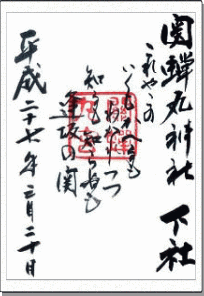 関蝉丸神社 下社
これやこの
いくもかへるも
わかれつつ
知るも知らぬも
逢坂の関
平成二十七年二月二十日